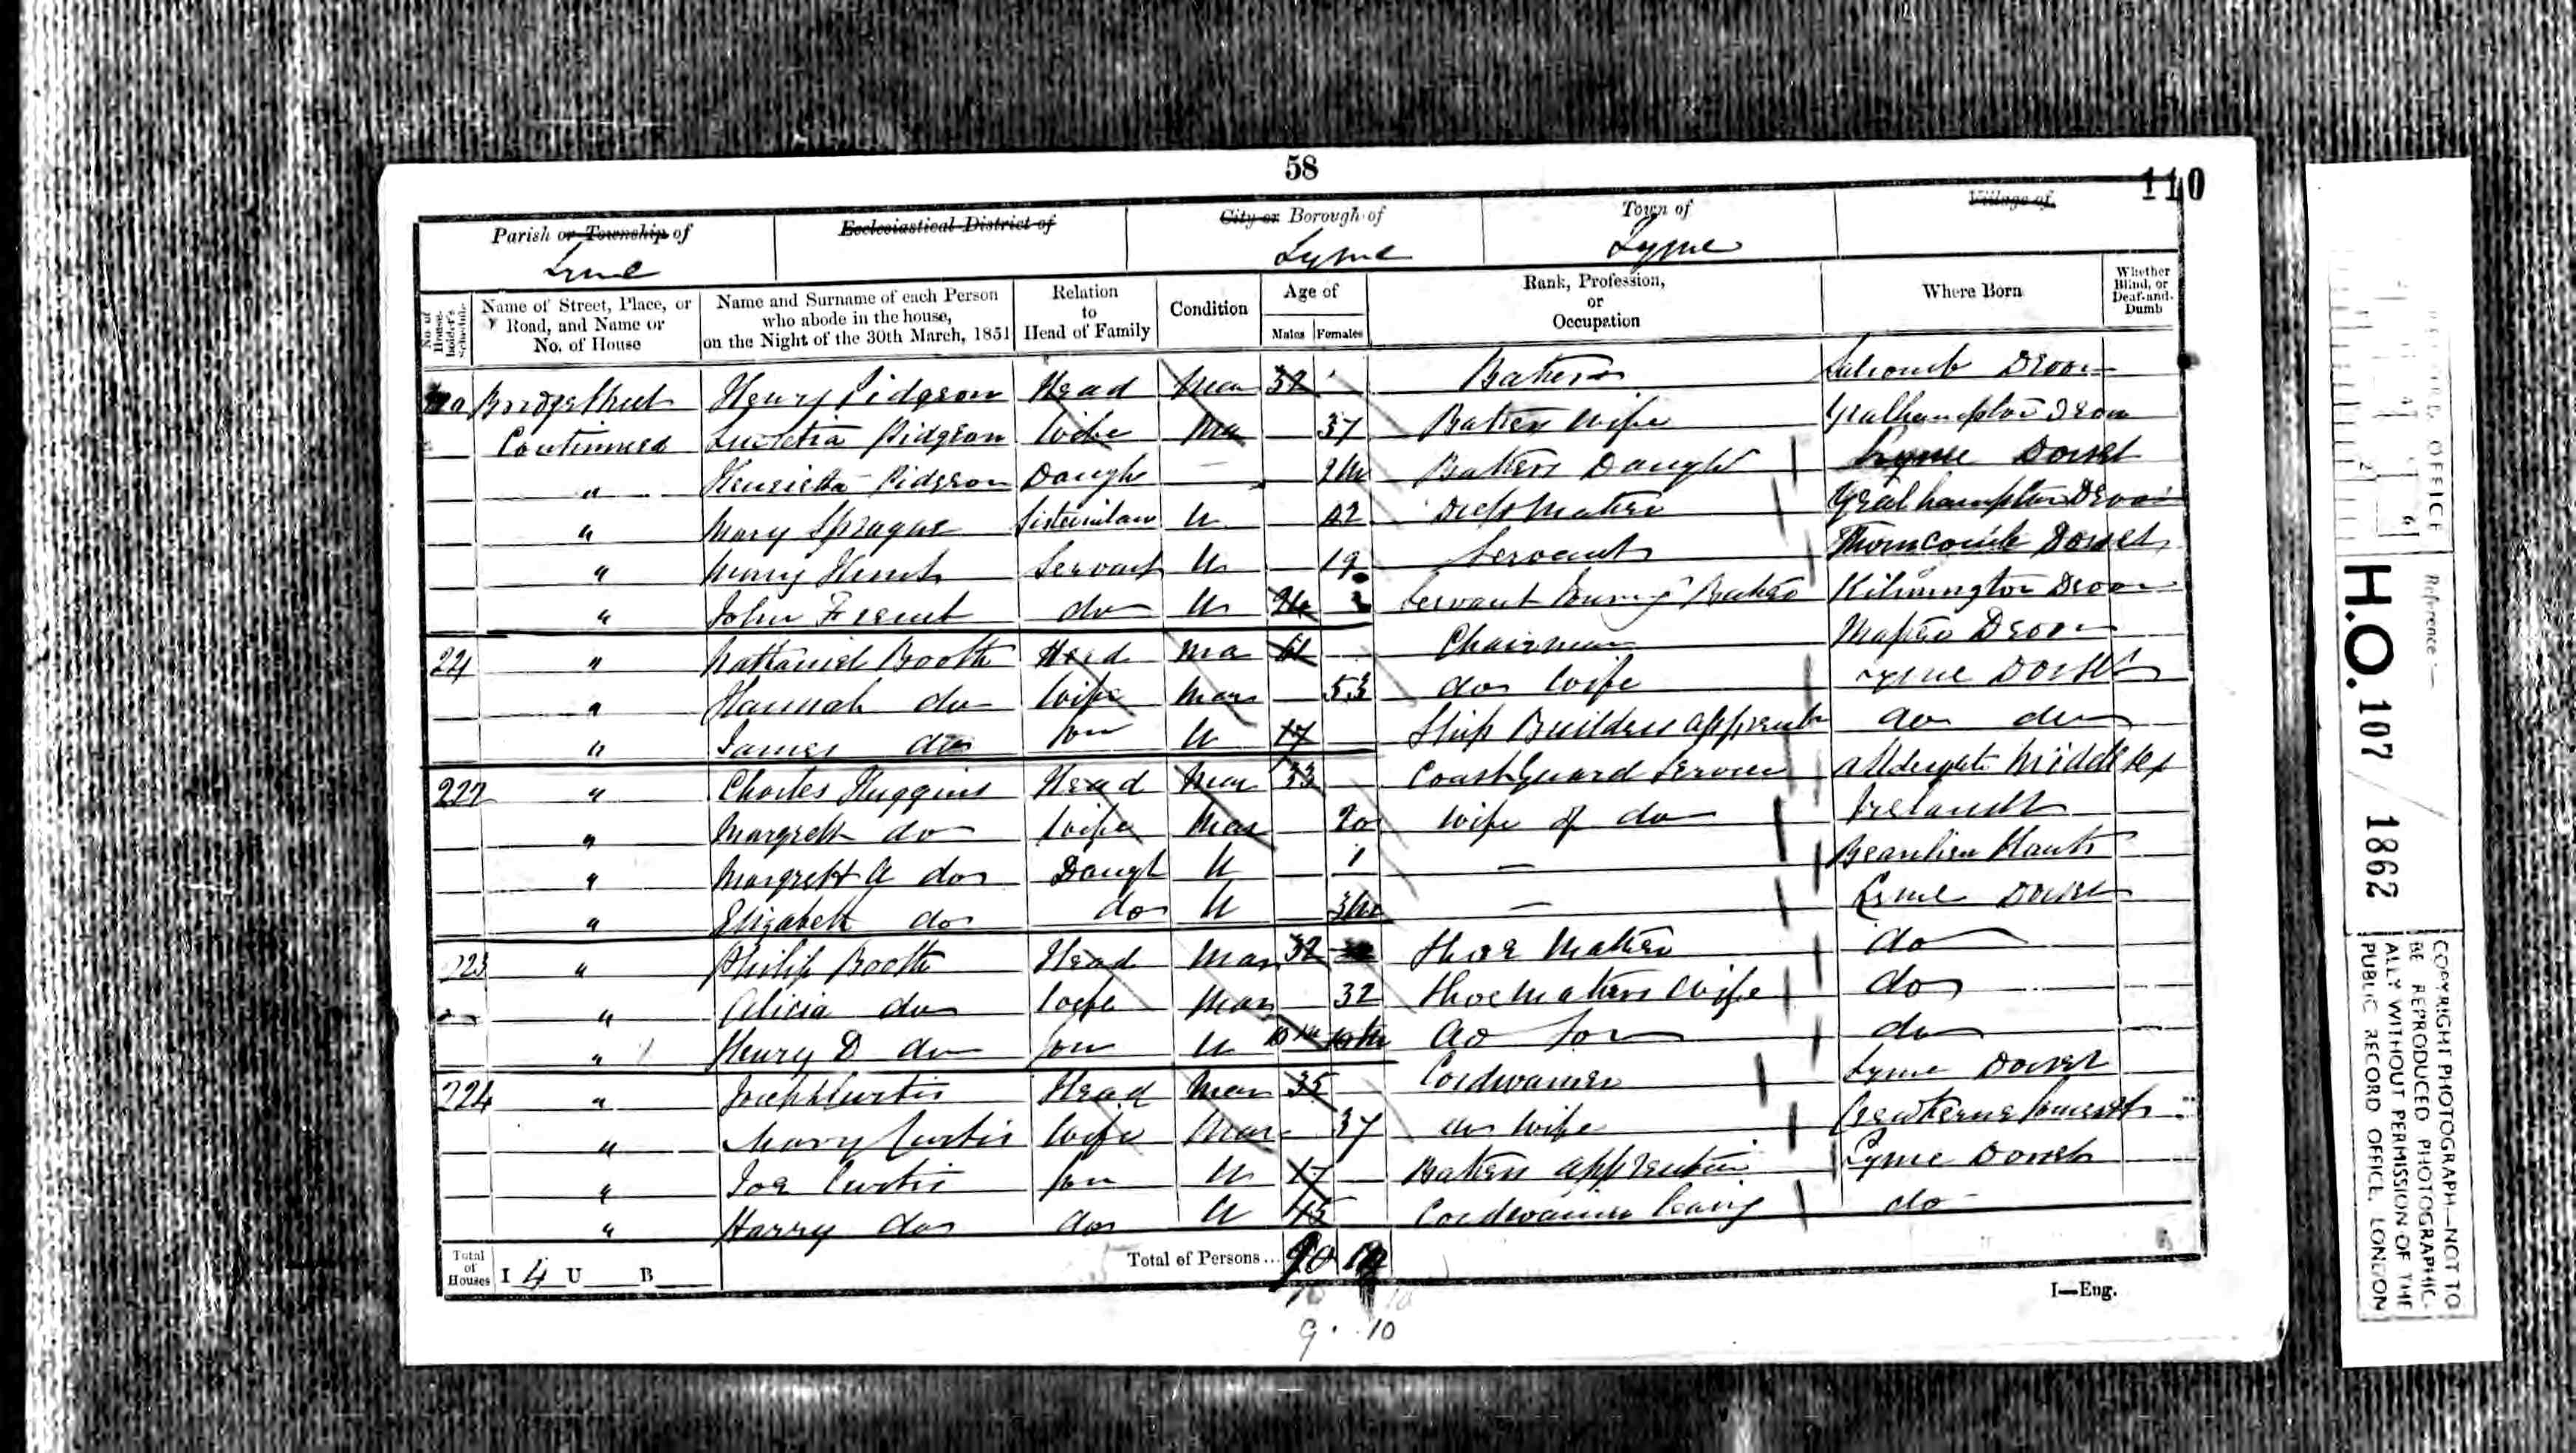 58
110
Parish or Township of
Ecclesiastical District of
City or Borough of
Town of
Village of
Lyme
Lyme
Lyme
No. of House-holder's Schedule
Name of Street, Place, or Road, and Name or No. of House
Name and Surname of each Person who abode in the house, on the Night of the 30th March, 1851
Relation to Head of Family
Condition
Age of
Males
Females
Rank, Profession, or Occupation
Where Born
Whether Blind, or Deaf-and-Dumb
Bridge Street Henry Pidgeon Head Mar 32 Baker Devon
Continued Lucretia Pidgeon Wife Ma 37 Bakers Wife Devon
" Henrietta Pidgeon Daugh 2m Bakers Daught Lyme Dorset
" Mary Sprague Sisterinlaw U 42 Dress Maker Devon
" Servant U 19 Servant Thorncombe Dorset
" John U Servant Baker Kilmington Devon
221 " Nathaniel Booth Head Ma 61 Chairman Devon
" Hannah do Wife Mar 53 do Wife Lyme Dorset
" James do Son U 17 Ship Builders apprent do do
222 " Charles Huggins Head Mar 33 Coast Guard Service Middlesex
" Margrett do Wife Mar 20 Wife of do Ireland
" Margrett A do Daugh U 1 — Beaulieu Hants
" Elizabeth do do U 3m — Lyme Dorset
223 " Philip Booth Head Mar 32 Shoe Maker do
" Alicia do Wife Mar 32 Shoemakers Wife do
" Henry D do Son U 10m do Son do
224 " Joseph Curtis Head Mar 35 Cordwainer Lyme Dorset
" Mary Curtis Wife Mar 37 do Wife Crewkerne Somerset
" Joe Curtis Son U 17 Bakers apprentice Lyme Dorset
" Harry do do U 15 Cordwainer do
Total of Houses I 4 U B
Total of Persons...
9 . 10
I—Eng.
OFFICE
Reference :—
H.O. 107 / 1862
COPYRIGHT PHOTOGRAPH—NOT TO
BE REPRODUCED PHOTOGRAPHIC-
ALLY WITHOUT PERMISSION OF THE
PUBLIC RECORD OFFICE, LONDON